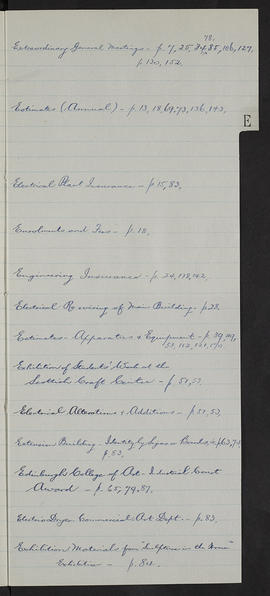 78,
Extraordinary General Meetings - p. 7, 25, 34, 85, 106, 127,
p. 130, 152.
Estimates (Annual) - p. 13, 18, 69, 73, 136, 143,
E
Electrical Plant Insurance - p. 15, 83,
Enrolments and Fees - p. 18.
Engineering Insurance - p. 24, 118, 142,
Electrical Re-wiring of Main Building - p. 28.
Estimates - Apparatus & Equipment - p. 39,
53, 112,
Exhibition of Students' Work at the
Scottish Craft Centre - p. 51, 53.
Electrical Alterations & Additions - p. 51, 53,
Extension Building - Identity by Signs or
p. 83.
Edinburgh College of Art - Industrial Court
Award - p. 65, 79, 87.
Electric Dryer Commercial Art Dept. - p. 83.
Exhibition Materials for "Sculpture in the Home"
Exhibition - p. 84.